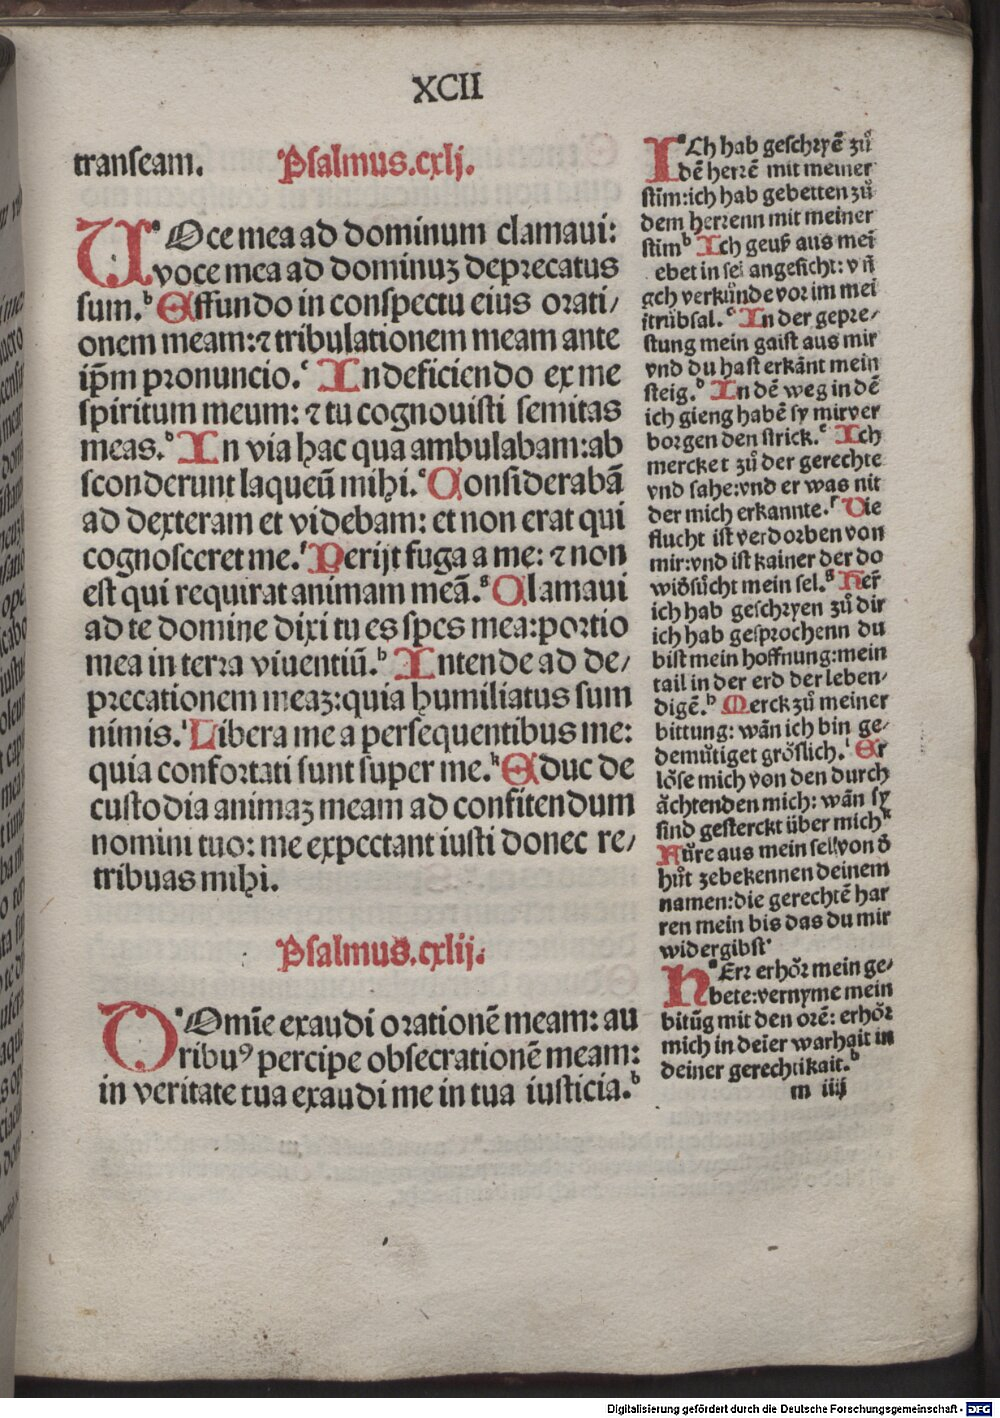 XCII
transeam. Psalmus.cxlj.
VOce mea ad dominum clamaui:
voce mea ad dominuꝫ deprecatus
sum.ᵇ Effundo in conspectu eius orati/
onem meam:⁊ tribulationem meam ante
ip̄m pronuncio.ᶜ In deficiendo ex me
spiritum meum: ⁊ tu cognouisti semitas
meas.ᵈ In via hac qua ambulabam:ab
sconderunt laqueū mihi.ᵉ Considerabā
ad dexteram et videbam: et non erat qui
cognosceret me.ᶠ Perijt fuga a me: ⁊ non
est qui requirat animam meā.ᵍ Clamaui
ad te domine dixi tu es spes mea:portio
mea in terra viuentiū.ʰ Intende ad de/
precationem meaꝫ:quia humiliatus sum
nimis.ⁱ Libera me a persequentibus me:
quia confortati sunt super me.ᵏ Educ de
custodia animaꝫ meam ad confitendum
nomini tuo: me expectant iusti donec re/
tribuas mihi.
Psalmus.cxlij.
DOmīe exaudi orationē meam: au
ribuꝰ percipe obsecrationē meam:
in veritate tua exaudi me in tua iusticia.ᵇ
ICh hab geschryē zů
dē herrē mit meiner
stim:ich hab gebetten zů
dem herrenn mit meiner
stimᵇ Ich geuß aus mei
ebet in sei angesicht: vn̄
gch verkünde vor im mei
itrübsal.ᶜ In der gepre/
stung mein gaist aus mir
vnd du hast erkānt mein
steig.ᵈ In dē weg in dē
ich gieng habē sy mir ver
borgen den strick.ᵉ Ich
mercket zů der gerechte
vnd sahe:vnd er was nit
der mich erkannte.ᶠ Die
flucht ist verdorben von
mir:vnd ist kainer der do
widsůcht mein sel.ᵍ Her̄
ich hab geschryen zů dir
ich hab gesprochenn du
bist mein hoffnung:mein
tail in der erd der leben/
digē.ʰ Merck zů meiner
bittung: wān ich bin ge/
demůtiget gröslich.ⁱ Er
löse mich von den durch
ächtenden mich: wān sy
sind gesterckt über michᵏ
Fůre aus mein sel von d̄
hůt zebekennen deinem
namen:die gerechtē har
ren mein bis das du mir
widergibst
HErr erhör mein ge/
bete:vernyme mein
bitūg mit den orē: erhör
mich in deier warhait in
deiner gerechtikait.ᵇ
m iiij
Digitalisierung gefördert durch die Deutsche Forschungsgemeinschaft - DFG